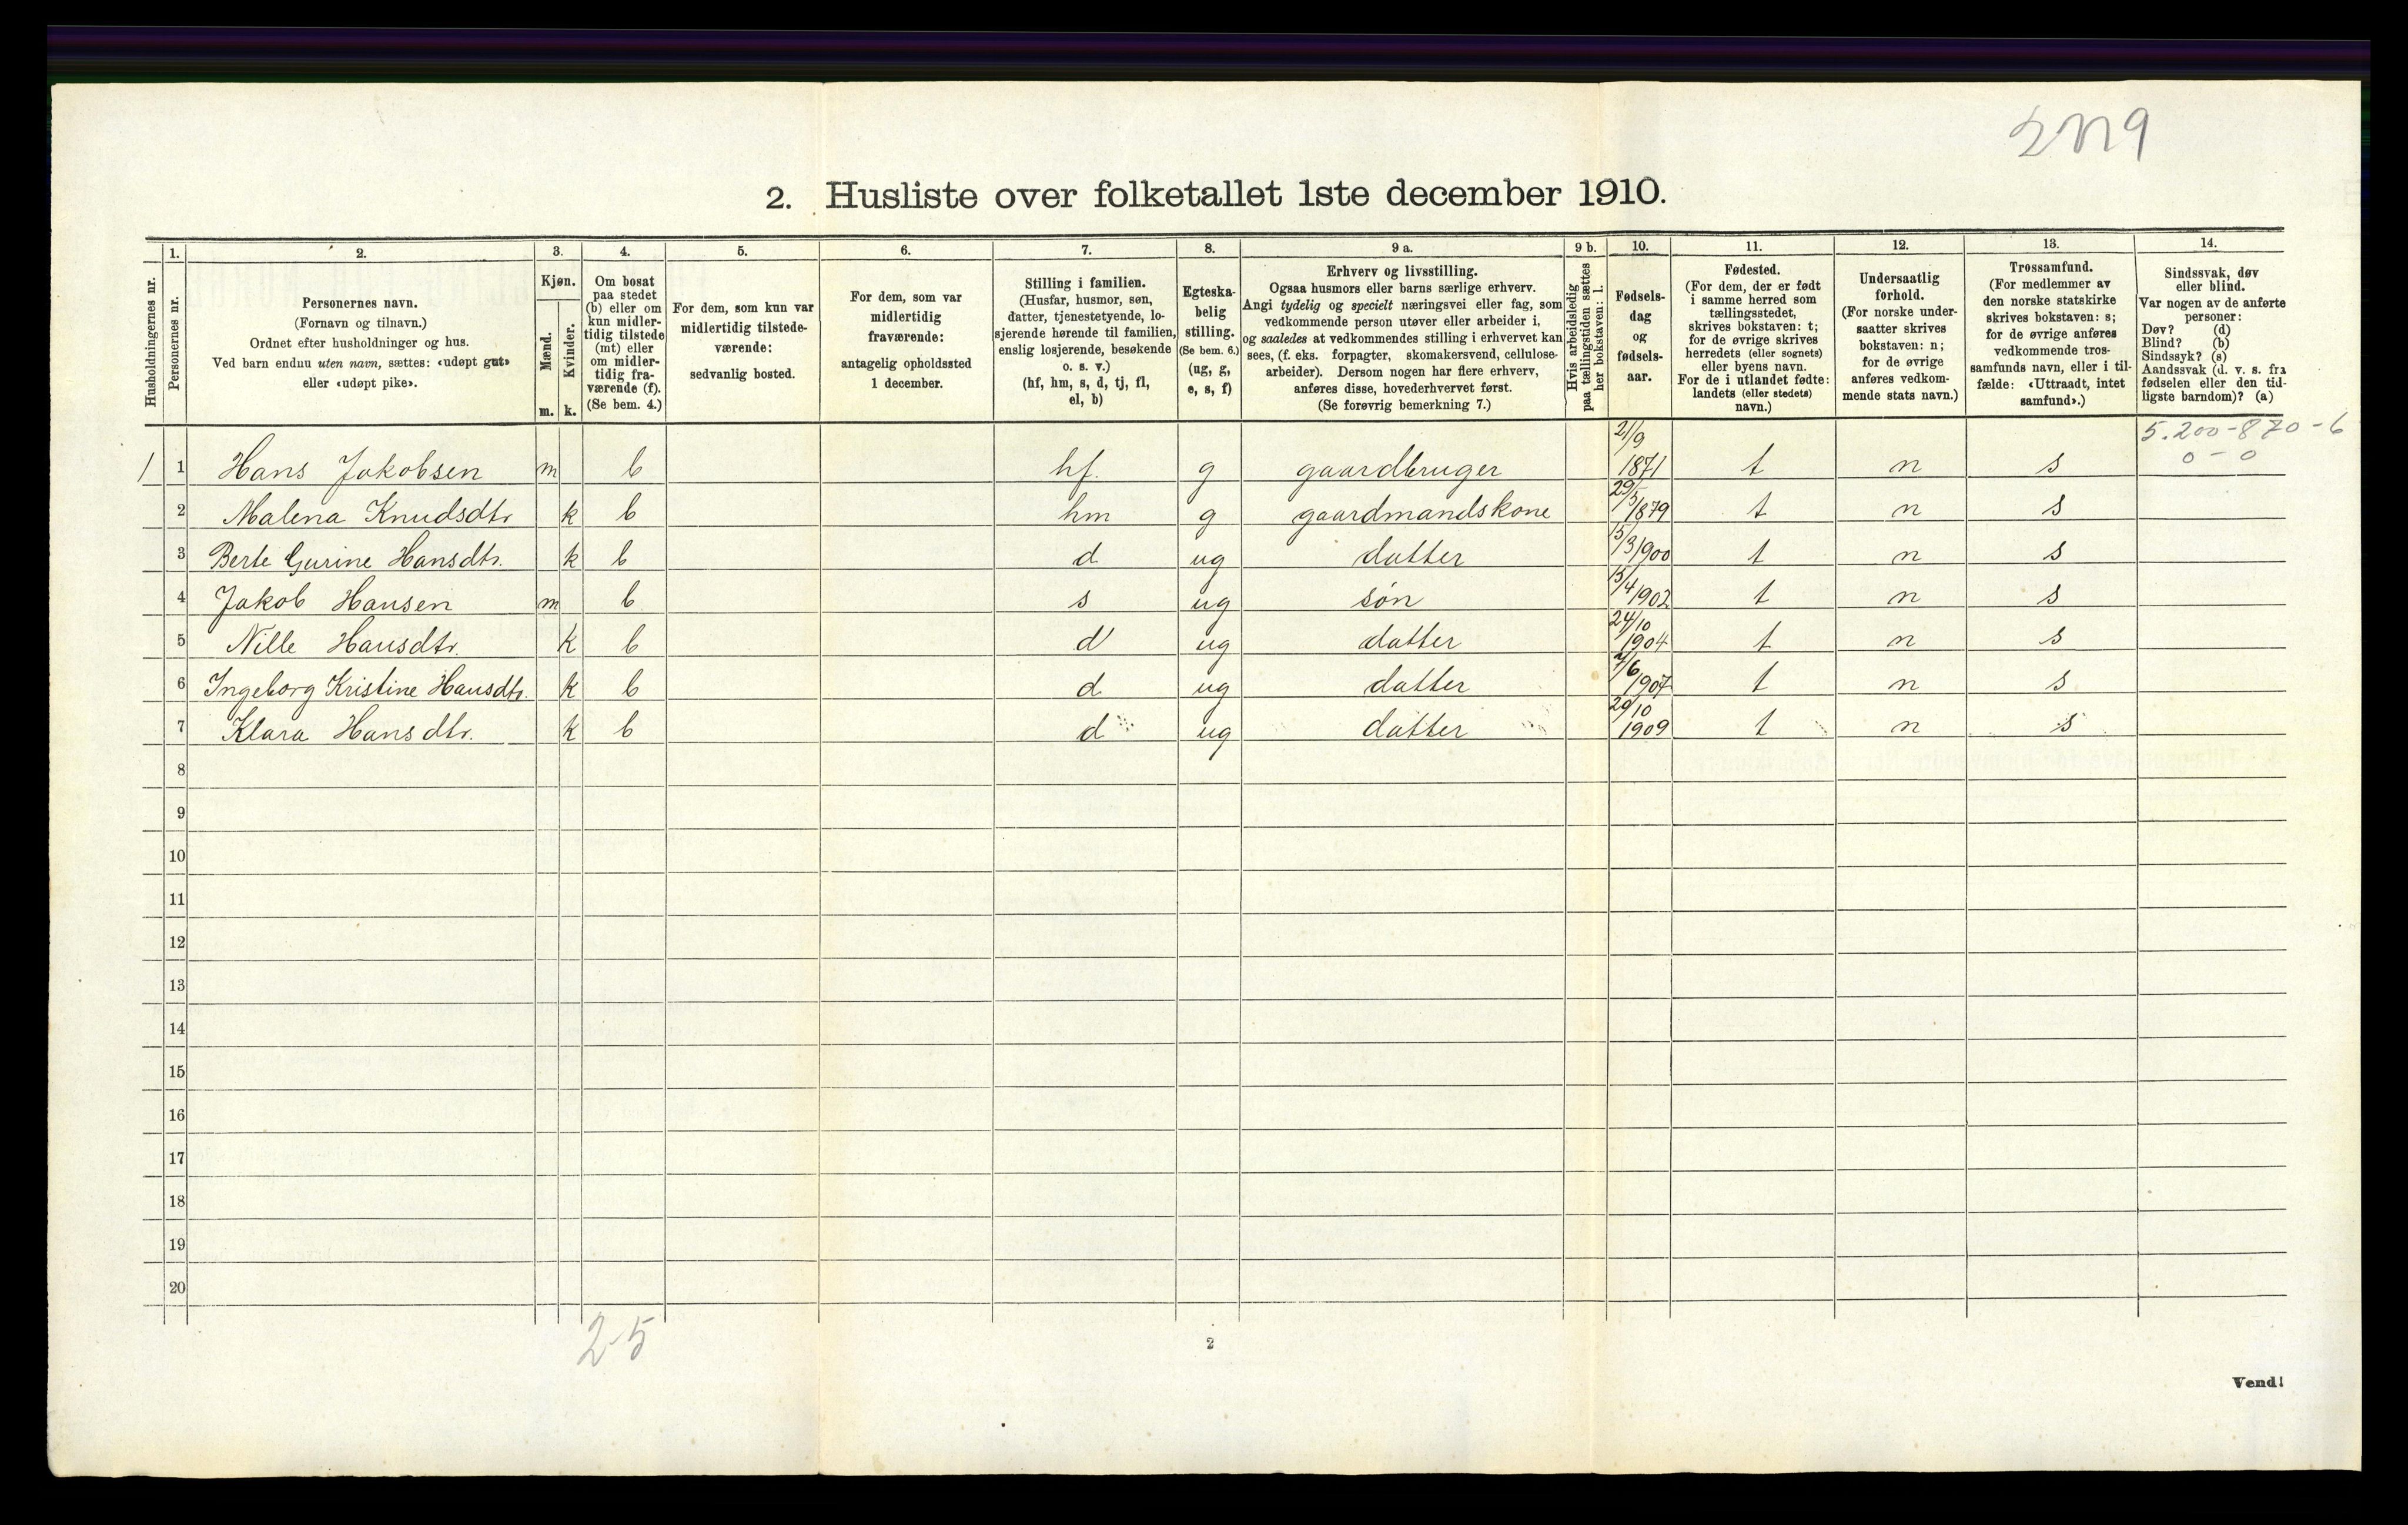 2. Husliste over folketallet 1ste december 1910.
Husholdningernes nr.
1.
Personernes nr.
2.
Personernes navn.
(Fornavn og tilnavn.)
Ordnet efter husholdninger og hus.
Ved barn endnu uten navn, sættes: «udøpt gut»
eller «udøpt pike».
3.
Kjøn.
Mænd.
Kvinder.
m. k.
4.
Om bosat
paa stedet
(b) eller om
kun midler-
tidig tilstede
(mt) eller
om midler-
tidig fra-
værende (f).
(Se bem. 4.)
5.
For dem, som kun var
midlertidig tilstede-
værende:
sedvanlig bosted.
6.
For dem, som var
midlertidig
fraværende:
antagelig opholdssted
1 december.
7.
Stilling i familien.
(Husfar, husmor, søn,
datter, tjenestetyende, lo-
sjerende hørende til familien,
enslig losjerende, besøkende
o. s. v.)
(hf, hm, s, d, tj, fl,
el, b)
8.
Egteska-
belig
stilling.
(Se bem. 6.)
(ug, g,
e, s, f)
9 a.
Erhverv og livsstilling.
Ogsaa husmors eller barns særlige erhverv.
Angi tydelig og specielt næringsvei eller fag, som
vedkommende person utøver eller arbeider i,
og saaledes at vedkommendes stilling i erhvervet kan
sees, (f. eks. forpagter, skomakersvend, cellulose-
arbeider). Dersom nogen har flere erhverv,
anføres disse, hovederhvervet først.
(Se forøvrig bemerkning 7.)
9 b.
Hvis arbeidsledig
paa tællingstiden sættes
her bokstaven: l.
10.
Fødsels-
dag
og
fødsels-
aar.
11.
Fødested.
(For dem, der er født
i samme herred som
tællingsstedet,
skrives bokstaven: t;
for de øvrige skrives
herredets (eller sognets)
eller byens navn.
For de i utlandet fødte:
landets (eller stedets)
navn.)
12.
Undersaatlig
forhold.
(For norske under-
saatter skrives
bokstaven: n;
for de øvrige
anføres vedkom-
mende stats navn.)
13.
Trossamfund.
(For medlemmer av
den norske statskirke
skrives bokstaven: s;
for de øvrige anføres
vedkommende tros-
samfunds navn, eller i til-
fælde: «Uttraadt, intet
samfund».)
14.
Sindssvak, døv
eller blind.
Var nogen av de anførte
personer:
Døv? (d)
Blind? (b)
Sindssyk? (s)
Aandssvak (d. v. s. fra
fødselen eller den tid-
ligste barndom)? (a)
5.200-870-6
0 - 0
1 1 Hans Jakobsen m b hf. g gaardbruger 21/9 1871 t n s
2 Malena Knudsdtr k b hm g gaardmandskone 29/5 1879 t n s
3 Berte Gurine Hansdtr. k b d ug datter 15/3 1900 t n s
4 Jakob Hansen m b s ug søn 15/4 1902 t n s
5 Nille Hansdtr. k b d ug datter 24/10 1904 t n s
6 Ingeborg Kristine Hansdtr. k b d ug datter 7/6 1907 t n s
7 Klara Hansdtr. k b d ug datter 29/10 1909 t n s
8
9
10
11
12
13
14
15
16
17
18
19
20
2-5
2
Vend!